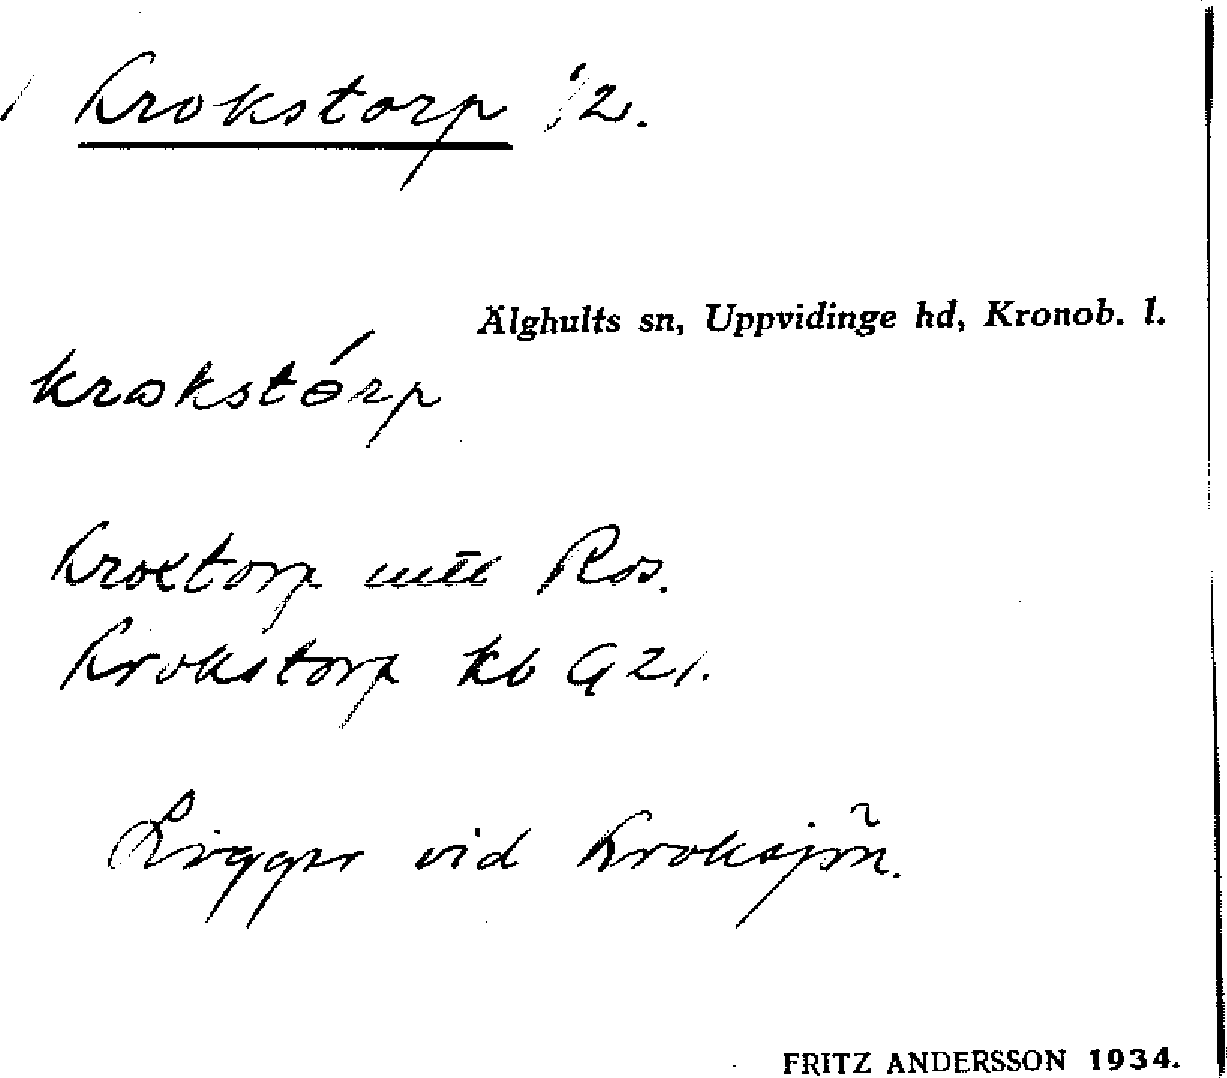 Krokstorp 1/2.
Älghults sn, Uppvidinge hd, Kronob. l.
krokstórp
Kroktorp Ros.
Krokstorp kb G21.
Ligger vid Kroksjön.
FRITZ ANDERSSON 1934.